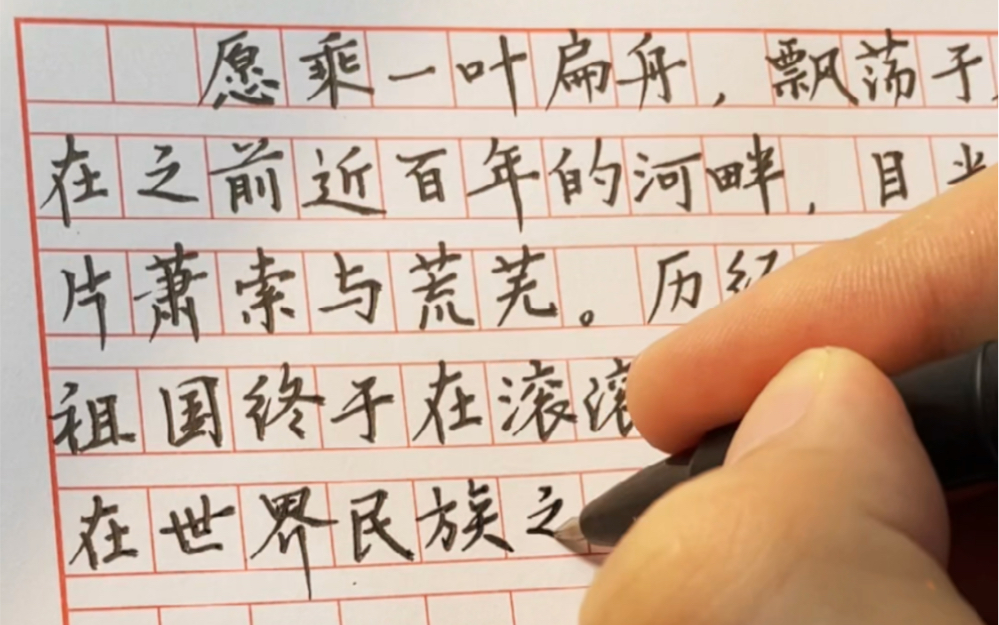 愿乘一叶扁舟，飘荡于
在之前近百年的河畔，目光
片萧索与荒芜。历经
祖国终于在滚滚
在世界民族之